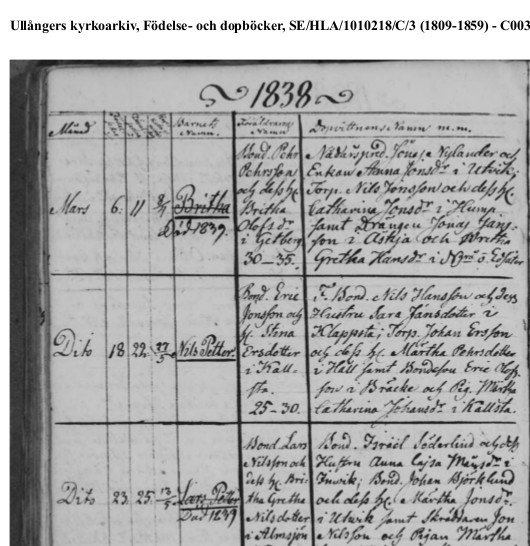 Ullångers kyrkoarkiv, Födelse- och dopböcker, SE/HLA/1010218/C/3 (1809-1859) - C003
1838
Barnets Namn. Föräldrarnas Namn Dopvittnens Namn m.m.
Mars 6. 11 Britha
Död 1839.
Bond. Pehr
Pehrsson
och dess h.
Britha
Olofsdr
i Getberg
30-35.
Nylander och
Enkan Anna Jonsdr i Utvik;
Torp. Nils Jonsson och dess h.
Catharina Jonsdr i
samt Drängen Jonas Jans-
son i Askja och Britha
Gretha Hansdr i
Dito 18. 22. 23/5 Nils Petter.
Bond. Eric
Jonsson och
h. Stina
Ersdotter
i Käll-
sta.
25-30.
F. Bond. Nils Hansson och dess
Hustru Sara Jansdotter i
Klappsta; Torp. Johan Ersson
och dess h. Märtha Pehrsdotter
i Häll samt Bondeson Eric Olofs-
son i Bräcke och Pig. Märtha
Catharina Johansdr i Källsta.
Dito 23. 25. 13/5 Lars Petter
Död 1839
Bond. Lars
Nilsson och
dess h. Bri-
tha Gretha
Nilsdotter
i Almsjön
Bond. Israel Söderlind och dess
Hustru Anna Cajsa
Invik; Bond. Johan Björklund
och dess h. Märtha Jonsdr.
i Utvik samt Skräddaren Jon
Nilsson och Pigan Märtha